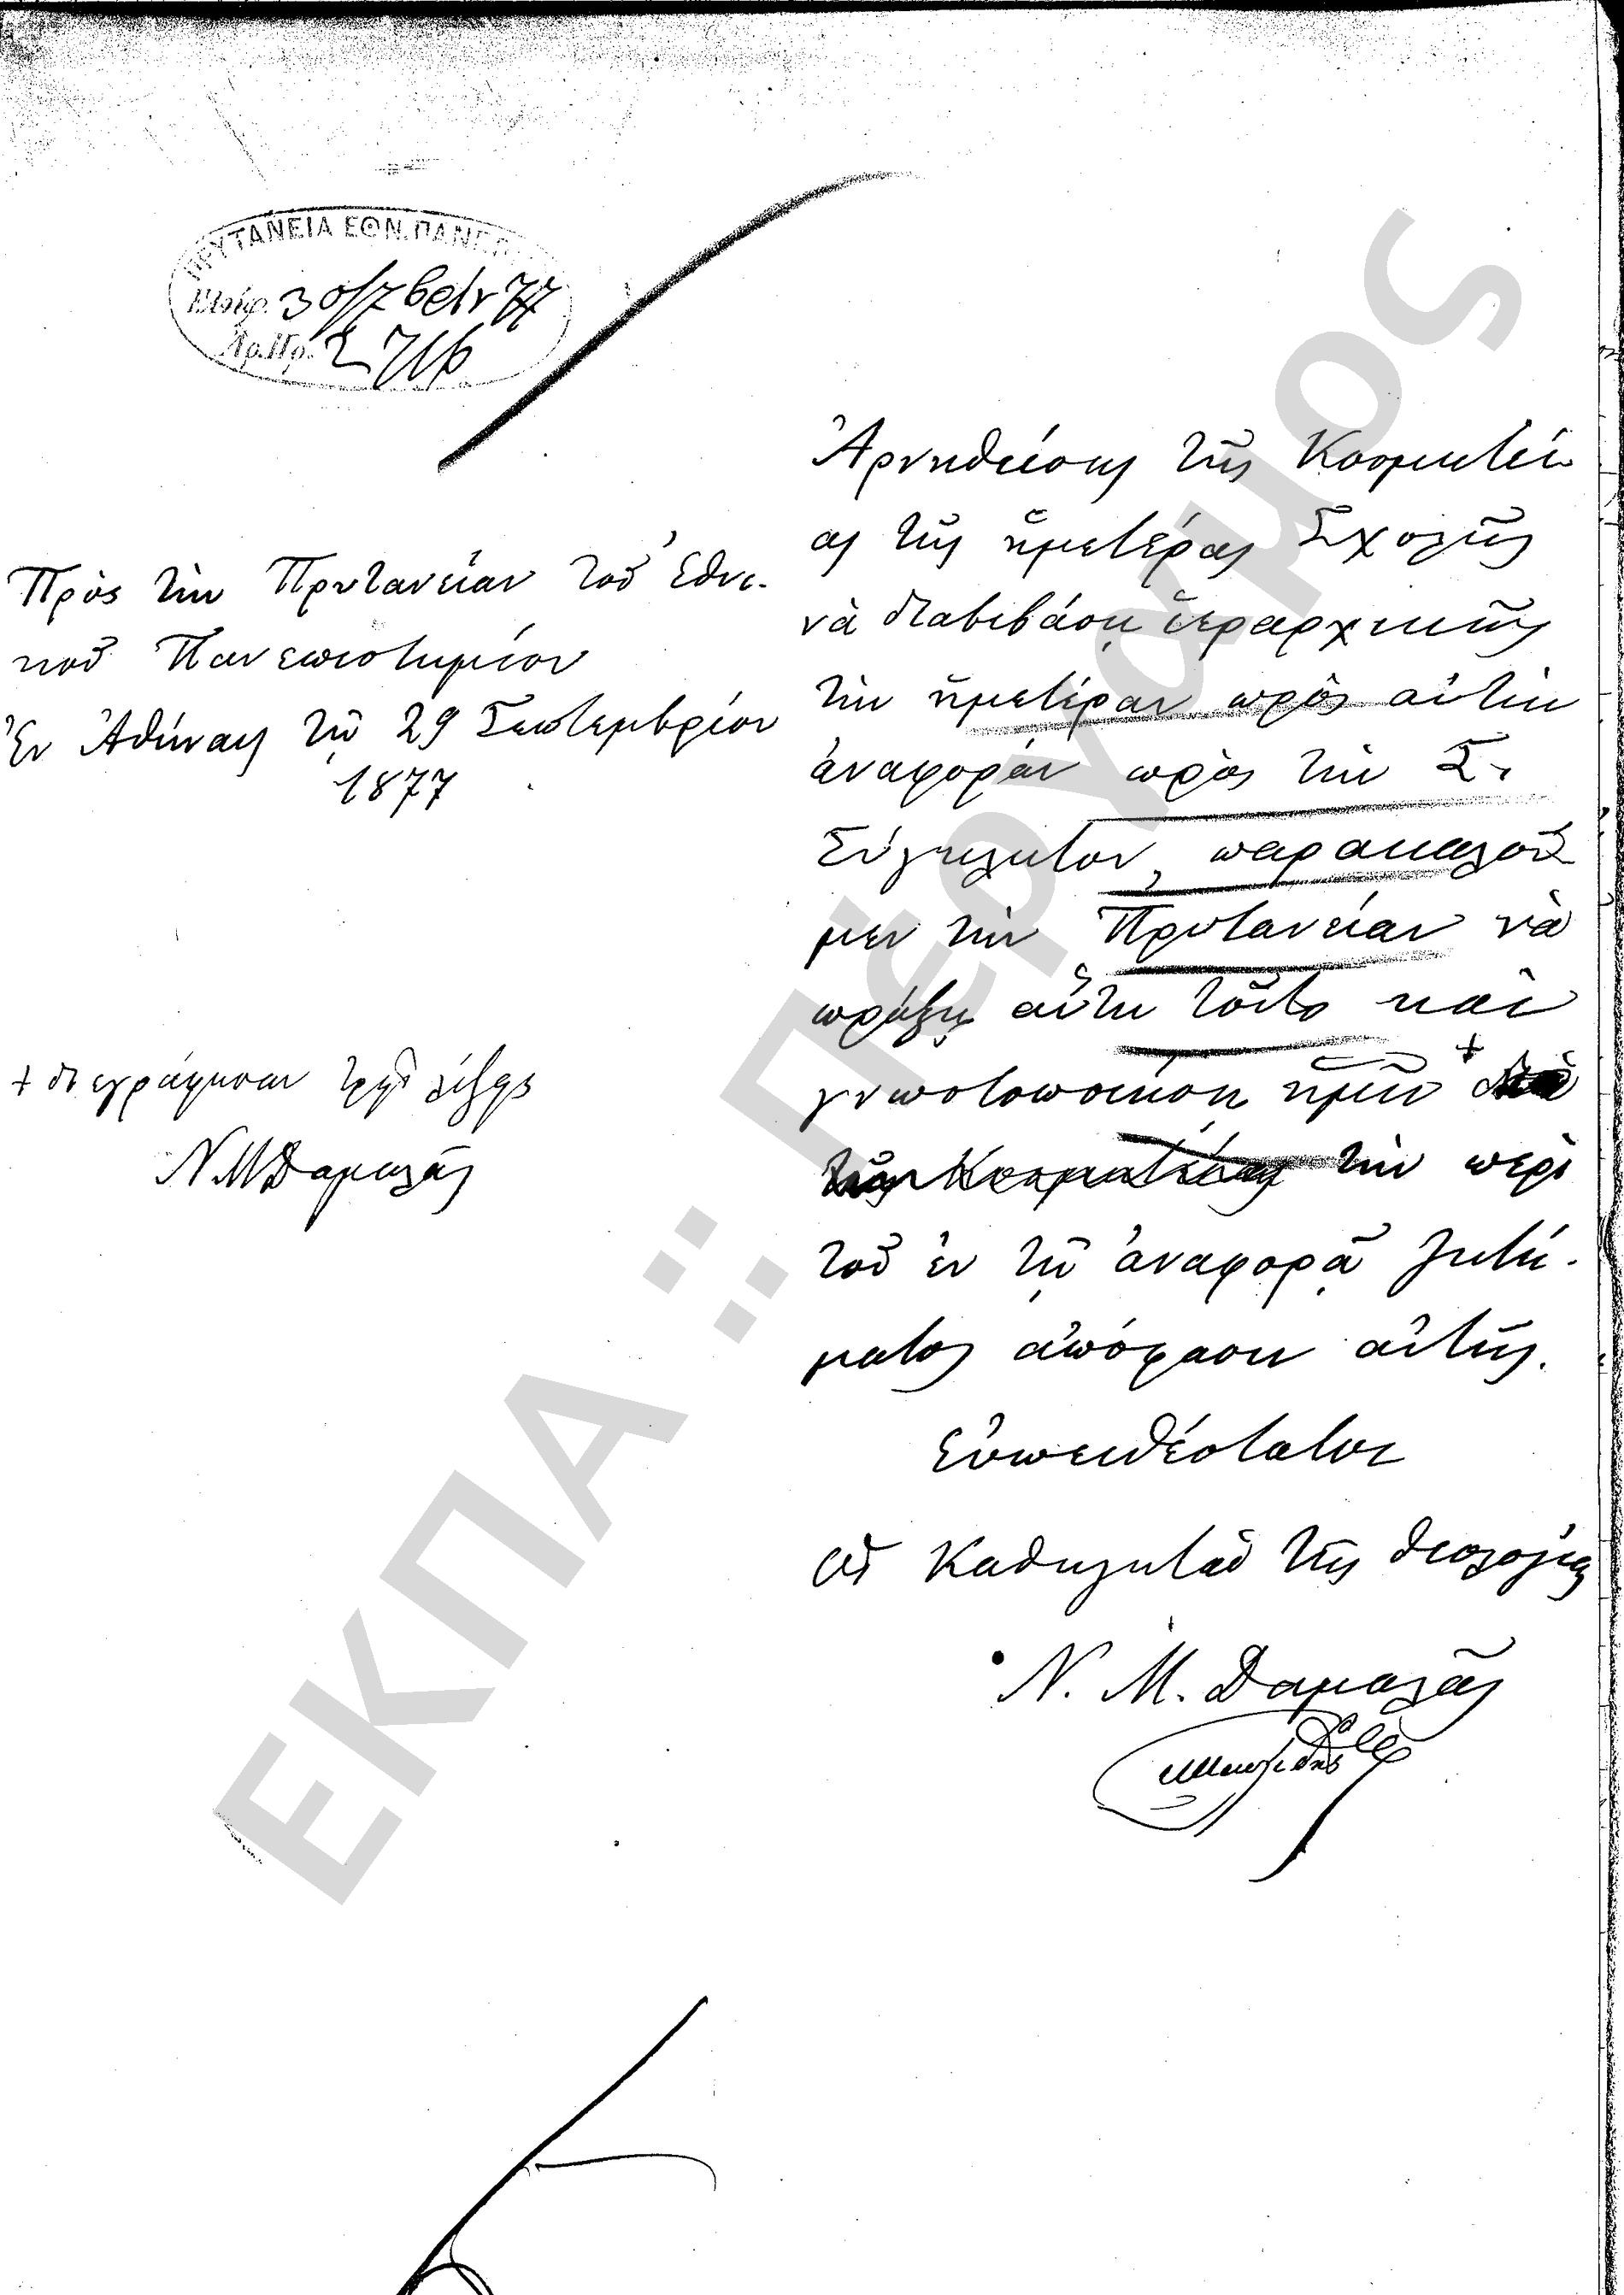 ΠΡΥΤΑΝΕΙΑ ΕΘΝ. ΠΑΝΕΠ
Ἀρ.Πρ. 2716
Πρὸς τὴν Πρυτανείαν τοῦ Ἐθνι-
κοῦ Πανεπιστημίου
Ἐν Ἀθήναις τῇ 29 Σεπτεμβρίου
1877
+ διεγράφησαν τρεῖς λέξεις
Ν Μ Δαμαλᾶς
Ἀρνηθείσης τῆς Κοσμητεί-
ας τῆς ἡμετέρας Σχολῆς
νὰ διαβιβάσῃ ἱεραρχικῶς
τὴν ἡμετέραν πρὸς αὐτὴν
ἀναφορὰν πρὸς τὴν Σ.
Σύγκλητον, παρακαλοῦ-
μεν τὴν Πρυτανείαν νὰ
πράξῃ αὕτη τοῦτο καὶ
γνωστοποιήσῃ ἡμῖν + διὰ
τῆς Κοσμητείας τὴν περὶ
τοῦ ἐν τῇ ἀναφορᾷ ζητή-
ματος ἀπόφασιν αὐτῆς.
Εὐπειθέστατοι
Οἱ Καθηγηταὶ τῆς Θεολογίας
Ν. Μ. Δαμαλᾶς
ΕΚΠΑ :: Πέργαμος